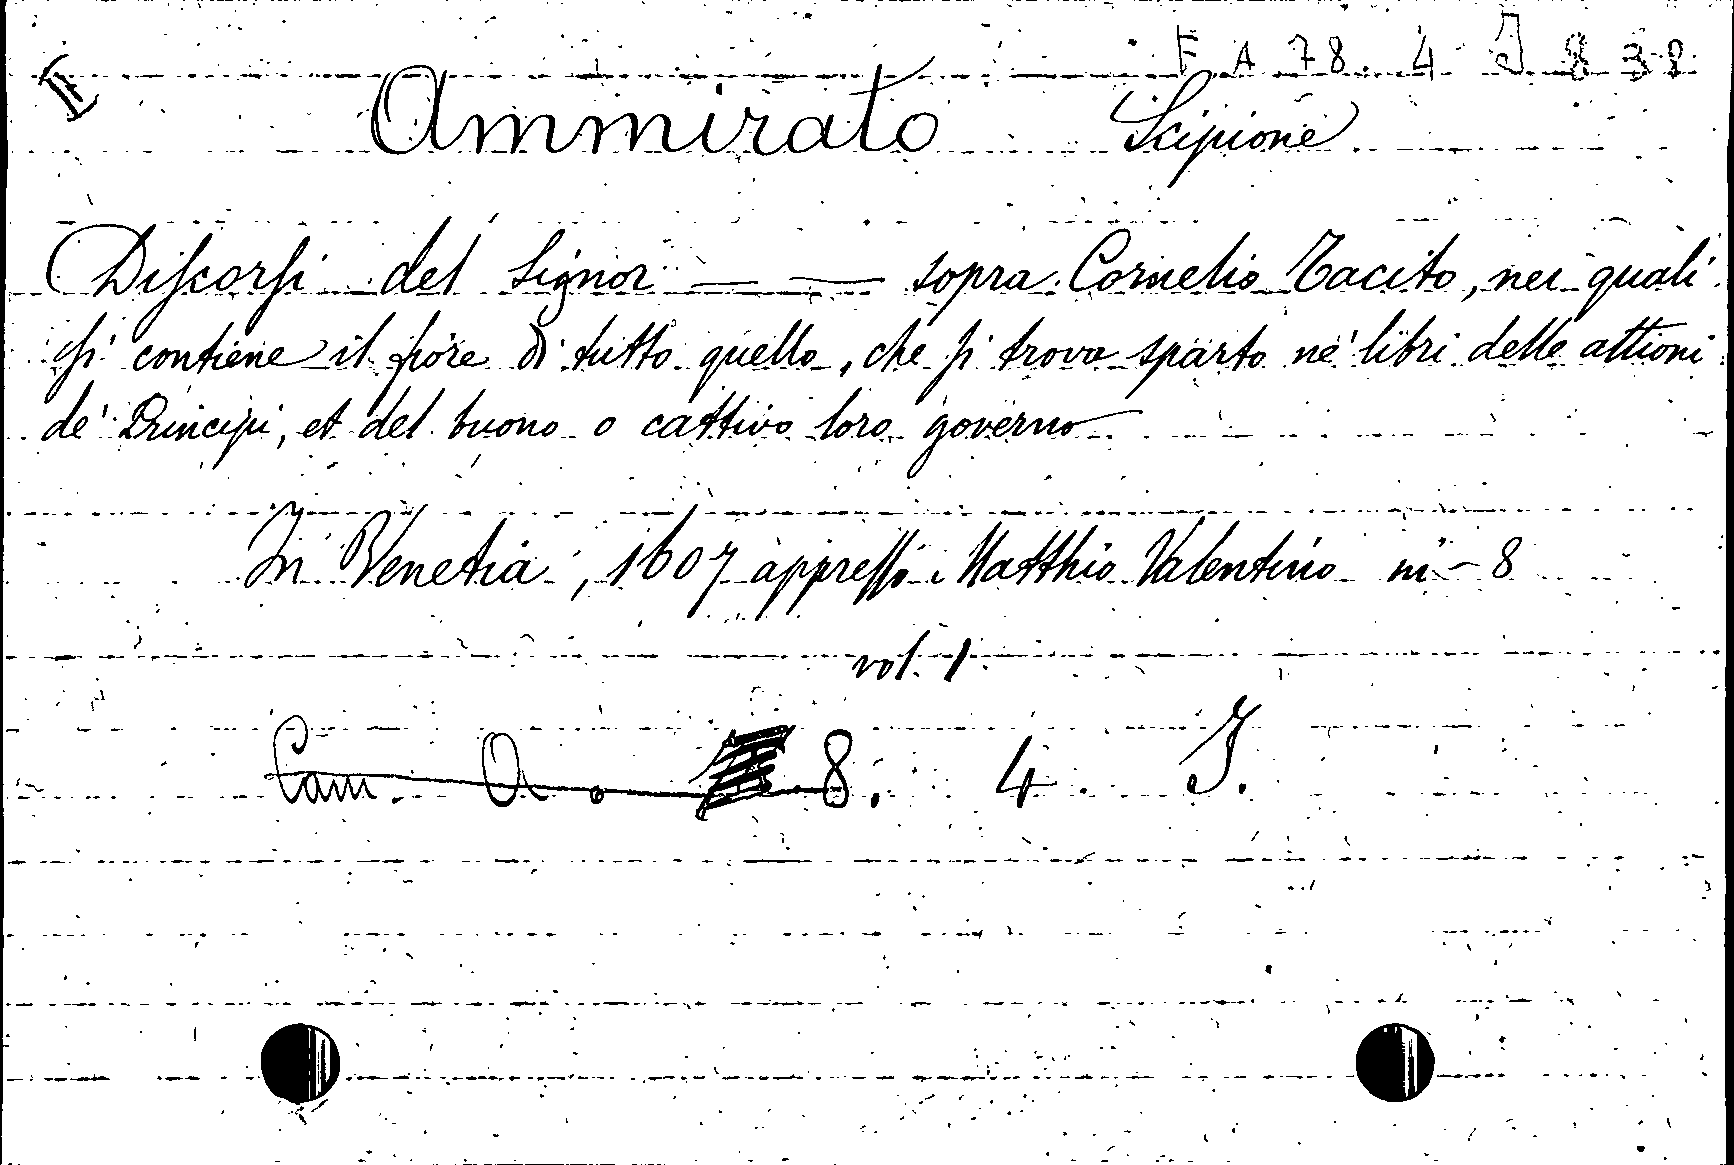 F A 78. 4 J 838
Ammirato Scipione
Discorsi del Signor — — sopra Cornelio Tacito, nei quali
si contiene il fiore di tutto quello, che si trova sparto ne' libri delle attioni
de' Principi, et del buono o cattivo loro governo
In Venetia, 1607 appresso Matthio Valentino in - 8
vol. 1
Cam. A. 8. 4. J.